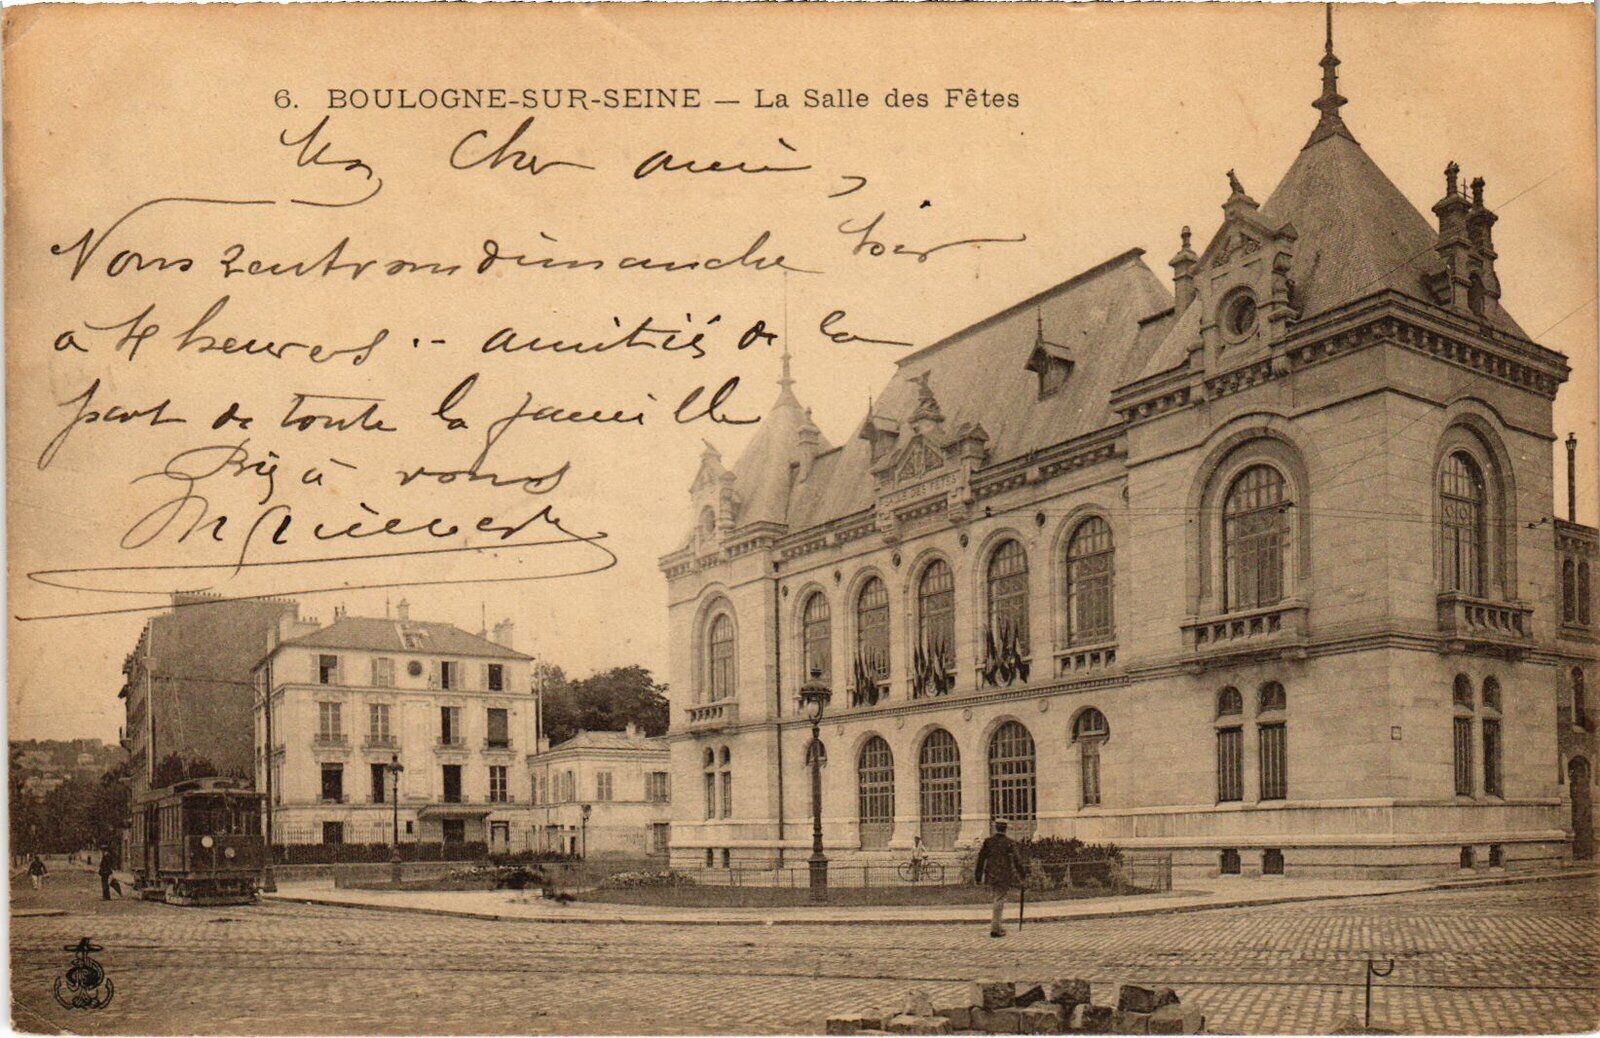 6. BOULOGNE-SUR-SEINE — La Salle des Fêtes
Cher ami,
Nous rentrons dimanche soir
à 4 heures .- amitiés de la
part de toute la famille
Bien à vous
SALLE DES FETES